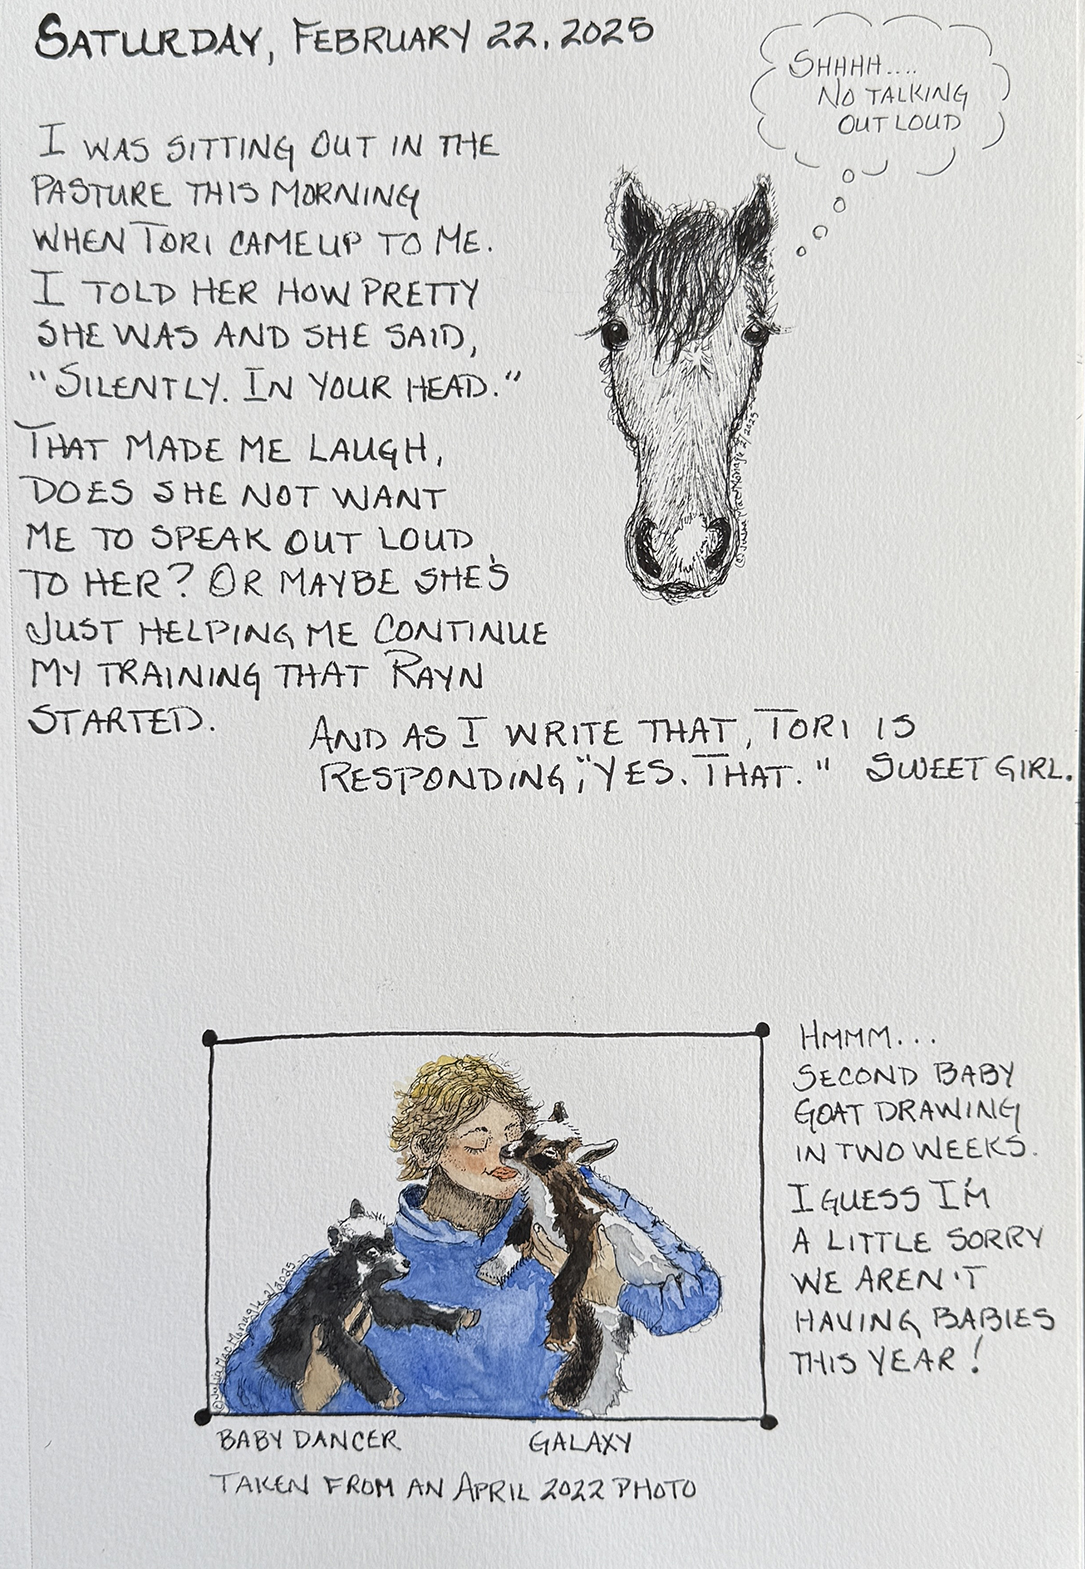 SATURDAY, FEBRUARY 22, 2025
SHHHH....
NO TALKING
OUT LOUD
I WAS SITTING OUT IN THE
PASTURE THIS MORNING
WHEN TORI CAME UP TO ME.
I TOLD HER HOW PRETTY
SHE WAS AND SHE SAID,
"SILENTLY. IN YOUR HEAD."
THAT MADE ME LAUGH,
DOES SHE NOT WANT
ME TO SPEAK OUT LOUD
TO HER? OR MAYBE SHE'S
JUST HELPING ME CONTINUE
MY TRAINING THAT RAYN
STARTED.
AND AS I WRITE THAT, TORI IS
RESPONDING, "YES. THAT." SWEET GIRL.
© Julia MacMonagle 2/2025
HMMM...
SECOND BABY
GOAT DRAWING
IN TWO WEEKS.
I GUESS I'M
A LITTLE SORRY
WE AREN'T
HAVING BABIES
THIS YEAR!
© Julia MacMonagle 2/2025
BABY DANCER GALAXY
TAKEN FROM AN APRIL 2022 PHOTO